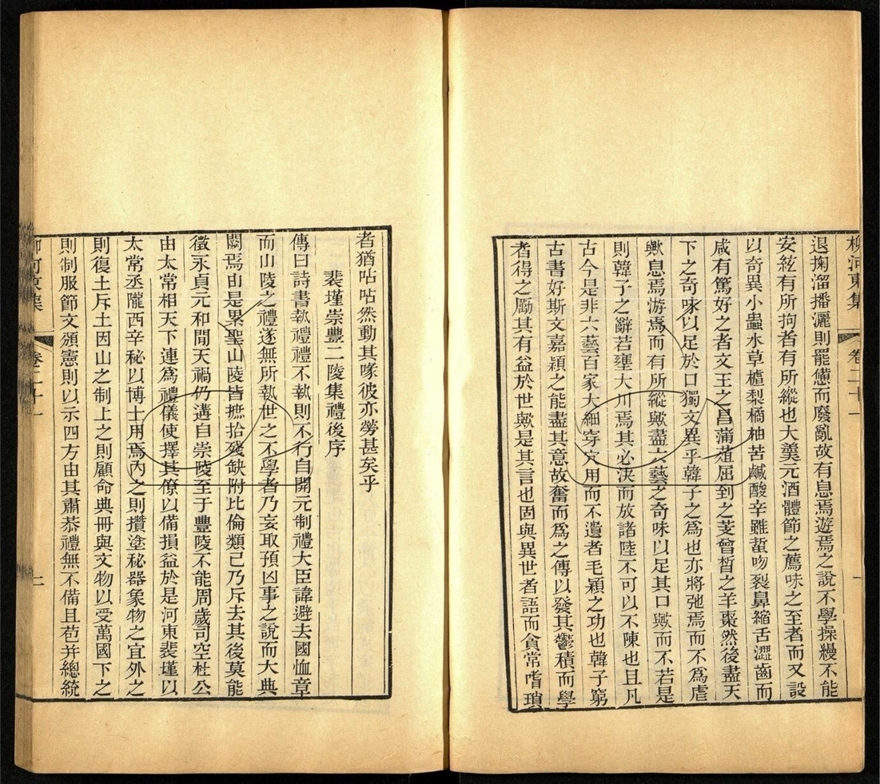 柳河東集 卷二十一 一
退掬溜播灑則罷憊而廢亂故有息焉遊焉之說不學操縵不能
安絃有所拘者有所縱也大羹元酒體節之薦味之至者而又設
以奇異小蟲水草樝梨橘柚苦鹹酸辛雖蜇吻裂鼻縮舌澀齒而
咸有篤好之者文王之昌蒲葅屈到之芰曾晳之羊棗然後盡天
下之奇味以足於口獨文異乎韓子之爲也亦將弛焉而不爲虐
歟息焉游焉而有所縱歟盡六藝之奇味以足其口歟而不若是
則韓子之辭若壅大川焉其必決而放諸陸不可以不陳也且凡
古今是非六藝百家大細穿穴用而不遺者毛穎之功也韓子窮
古書好斯文嘉穎之能盡其意故奮而爲之傳以發其鬱積而學
者得之勵其有益於世歟是其言也固與異世者語而貪常嗜瑣
者猶呫呫然動其喙彼亦勞甚矣乎
裴墐崇豐二陵集禮後序
傳曰詩書執禮禮不執則不行自開元制禮大臣諱避去國恤章
而山陵之禮遂無所執世之不學者乃妄取預凶事之說而大典
闕焉由是累聖山陵皆摭拾殘缺附比倫類已乃斥去其後莫能
徵永貞元和間天禍仍遘自崇陵至于豐陵不能周歲司空杜公
由太常相天下連爲禮儀使擇其僚以備損益於是河東裴墐以
太常丞隴西辛秘以博士用焉內之則攢塗秘器象物之宜外之
則復土斥土因山之制上之則顧命典冊與文物以受萬國下之
則制服節文頒憲則以示四方由其肅恭禮無不備且苞并總統
柳河東集 卷二十一 二